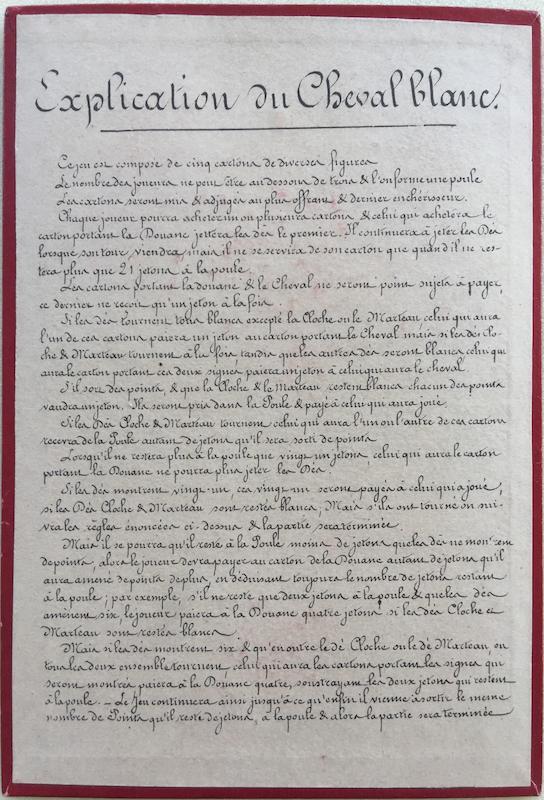 Explication du Cheval blanc.
Ce jeu est composé de cinq cartons de diverses figures
Le nombre des joueurs ne peut être au dessous de trois & l'on forme une poule
Les cartons seront mis & adjugés au plus offrant & dernier enchérisseur.
Chaque joueur pourra acheter un ou plusieurs cartons & celui qui achètera le
carton portant la Douane jettera les dés le premier. Il continuera à jeter les Dés
lorsque son tour viendra, mais il ne se servira de son carton que quand il ne res-
tera plus que 21 jetons à la poule.
Les cartons portant la douane & le Cheval ne seront point sujets à payer,
ce dernier ne reçoit qu'un jeton à la fois.
Si les dés tournent tous blancs excepté la Cloche ou le Marteau celui qui aura
l'un de ces cartons paiera un jeton au carton portant le Cheval mais si les dés Clo-
che & Marteau tournent à la fois tandis que les autres dés seront blancs, celui qui
aura le carton portant ces deux signes paiera un jeton à celui qui aura le cheval
S'il sort des points, & que la Cloche & le Marteau restent blancs chacun des points
vaudra un jeton. Ils seront pris dans la Poule & payé à celui qui aura joué.
Si les Dés Cloche & Marteau tournent celui qui aura l'un ou l'autre de ces cartons
recevra de la Poule autant de jetons qu'il sera sorti de points.
Lorsqu'il ne restera plus à la poule que vingt un jetons, celui qui aura le carton
portant la Douane ne pourra plus jeter les Dés.
Si les dés montrent vingt-un, ces vingt-un seront payés à celui qui a joué,
si les Dés Cloche & Marteau sont restés blancs; Mais s'ils ont tourné on sui-
vra les règles énoncées ci-dessus & la partie sera terminée.
Mais il se pourra qu'il reste à la Poule moins de jetons que les dés ne montrent
de points, alors le joueur devra payer au carton de la Douane autant de jetons qu'il
aura amené de points de plus, en déduisant toujours le nombre de jetons restant
à la poule; par exemple, s'il ne reste que deux jetons à la poule & que les dés
amènent six, le joueur paiera à la Douane quatre jetons si les dés Cloche et
Marteau sont restés blancs.
Mais si les dés montrent six & qu'en outre le dé Cloche ou le dé Marteau, ou
tous les deux ensemble tournent celui qui aura les cartons portant les signes qui
seront montrés paiera à la Douane quatre, soustrayant les deux jetons qui restent
à la poule. — Le Jeu continuera ainsi jusqu'à ce qu'enfin il vienne à sortir le meme
nombre de Points qu'il reste de jetons, à la poule & alors la partie sera terminée